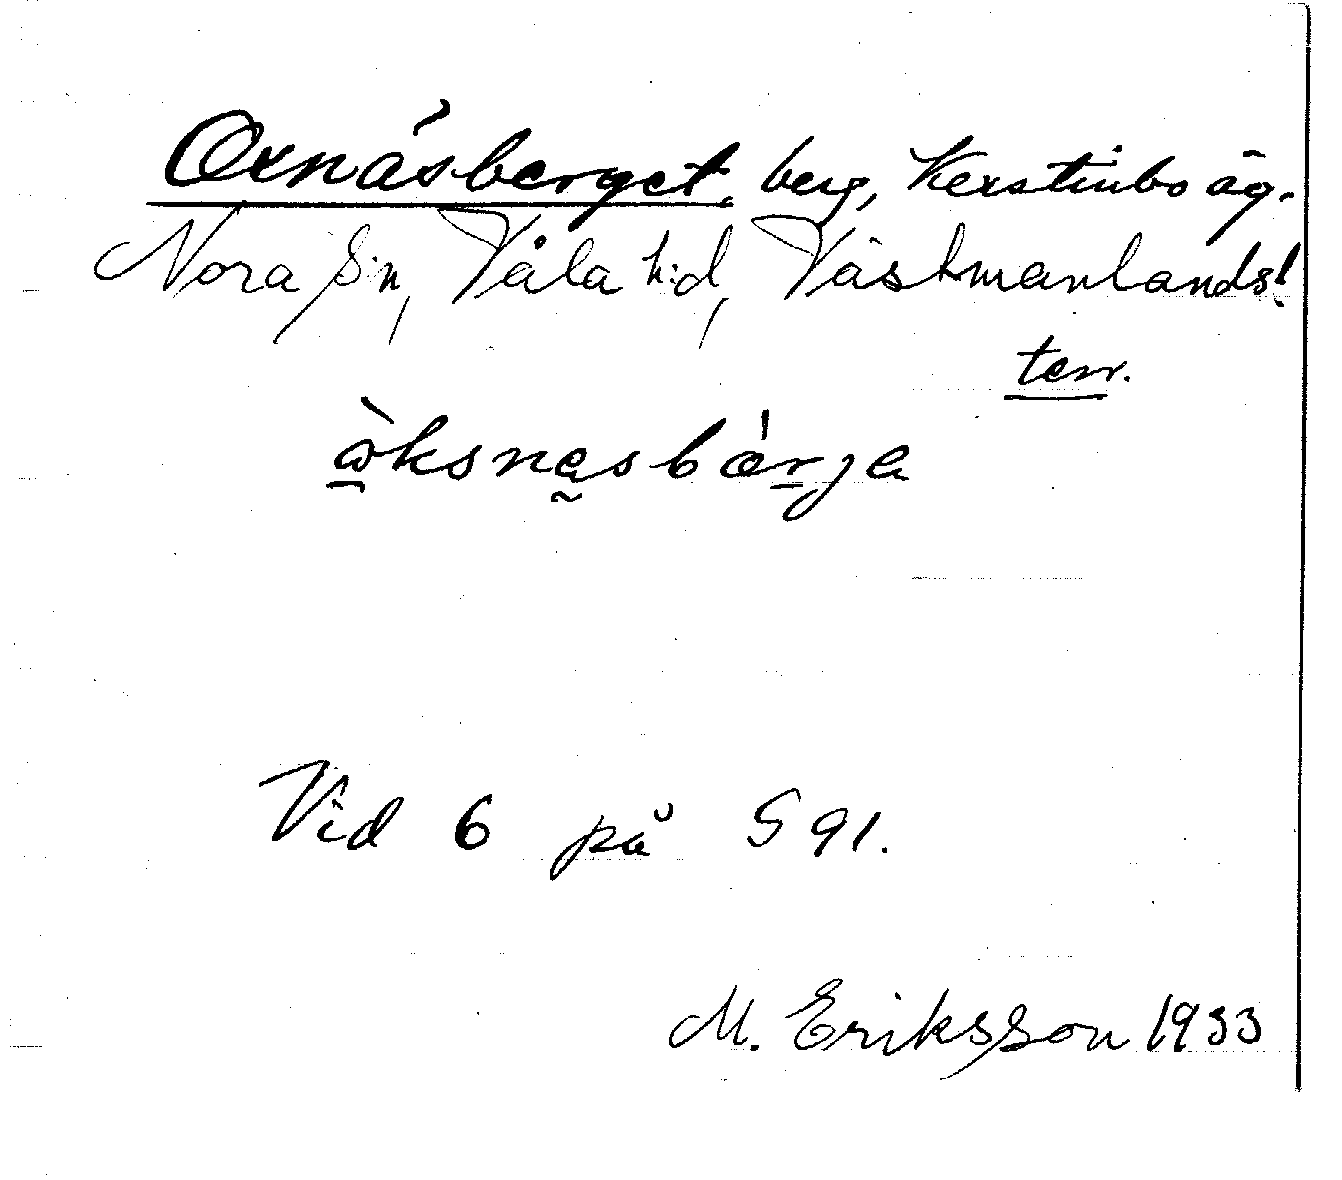 Oxnäsberget, berg, Kerstinbo äg.
Nora s:n, Våla h:d, Västmanlands l.
terr.
Vid 6 på S 91.
M. Eriksson 1933